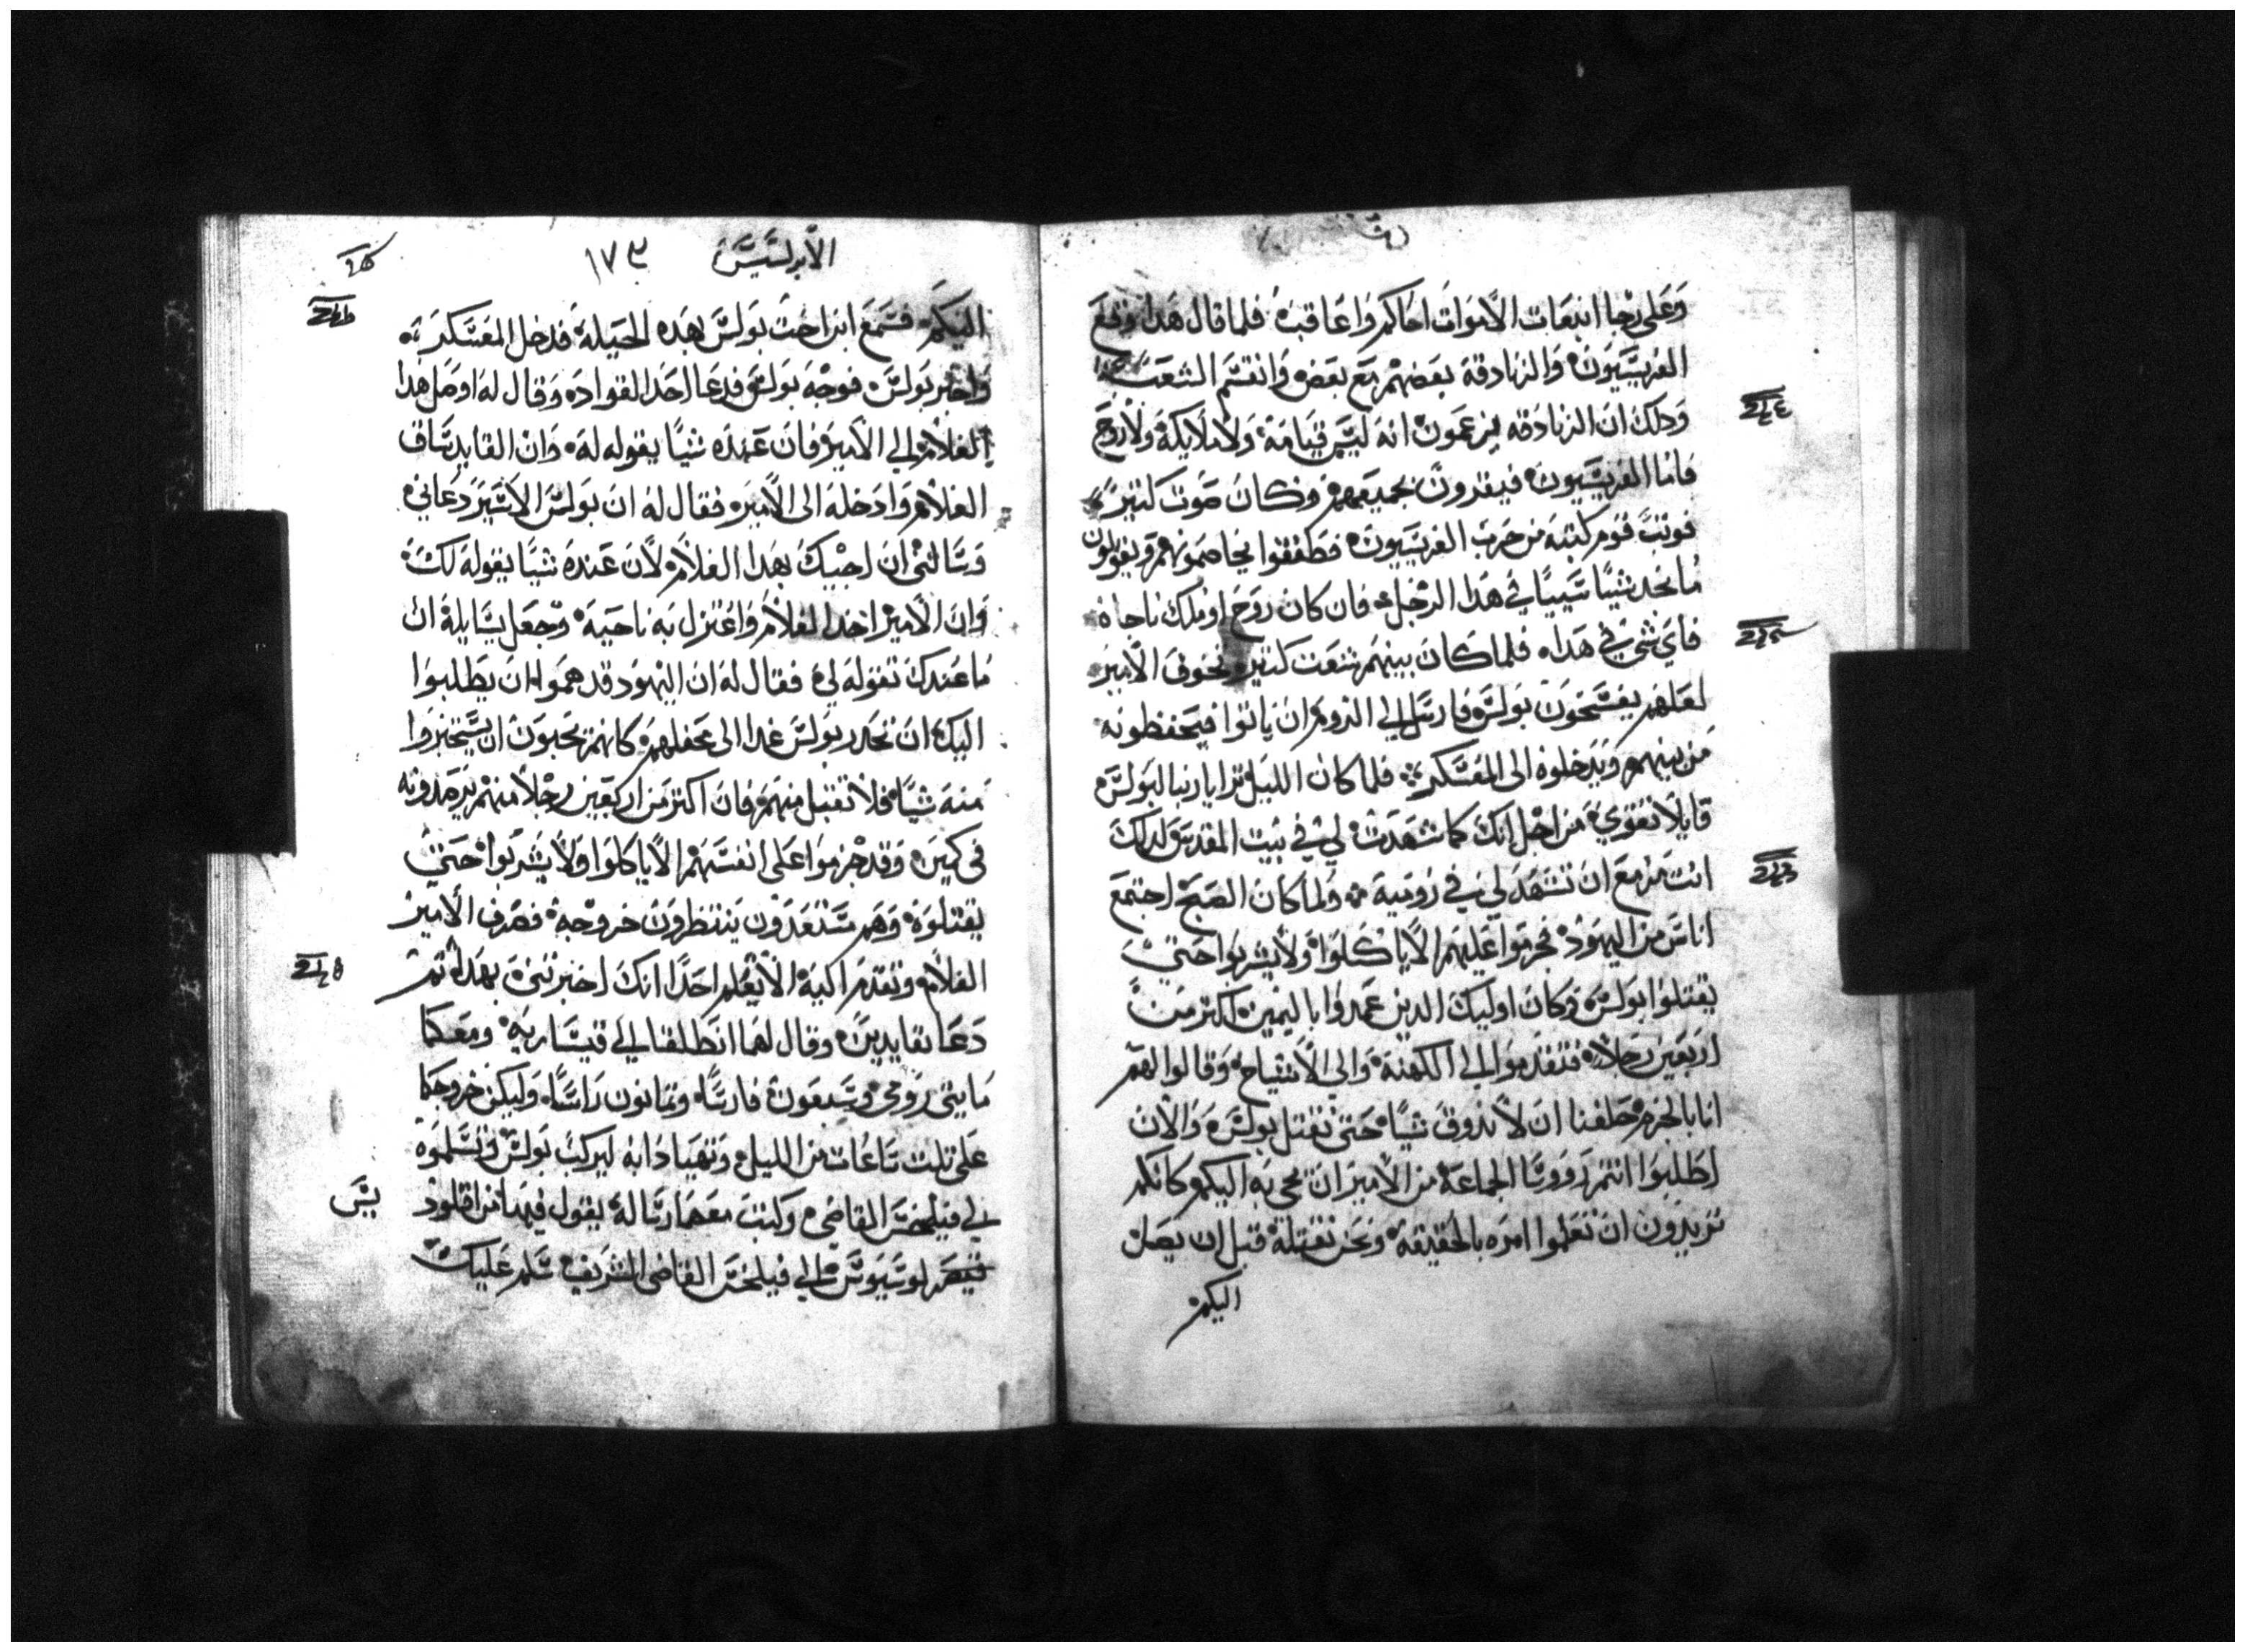 وعلى رجا انبعات الاموات احاكم واعاقب فلما قال هدا وقع
الفريسيون والزنادقة بعضهم مع بعض وانقسم الشعب
ودلك ان الزنادقه يزعمون انه ليس قيامة ولا ملايكة ولا روح
فاما الفريسيون فيقرون بجميعهم وكان صوت كتير
فوتب قوم كتبه من حزب الفريسيون فطفقوا يخاصمونهم ويقولون
ما نجد شيا سيا في هدا الرجل فان كان روح او ملك ناجاه
فاي شي في هدا فلما كان بينهم شعت كتير تخوف الامير
لعلهم يفسخون بولس فارسل الى الروم ان ياتوا فيحفظونه
من بينهم ويدخلوه الى المعسكر فلما كان الليل ترايا ربنا لبولس
قايلا تقوي من اجل انك كما شهدت لي في بيت المقدس لدلك
انت مزمع ان تشهد لي في رومية ولما كان الصبح اجتمع
اناس من اليهود فحرموا عليهم الا ياكلوا ولا يشربوا حتى
يقتلوا بولس وكان اوليك الدين عمدوا باليمين اكتر من
اربعين رجلا فتقدموا الى الكهنة والى الاشياخ وقالوا لهم
انا بالحرم حلفنا ان لا ندوق شيا حتى نقتل بولس والان
اطلبوا انتم وروسا الجماعة من الامير ان يجى به اليكم كانكم
تريدون ان تعلموا امره بالحقيقة ونحن نقتله قبل ان يصل
اليكم
الابركسيس ١٧٣
اليكم فسمع ابن اخت بولس بهده الحيلة فدخل المعسكر
واخبر بولس فوجه بولس فدعا احد القواد وقال له اوصل هدا
الغلام الى الامير فان عنده شيا يقوله له وان القايد ساق
الغلام وادخله الى الامير فقال له ان بولس الاسير دعاني
وسالني ان اجيبك بهدا الغلام لان عنده شيا يقوله لك
وان الامير اخد الغلام واعتزل به ناحية وجعل يسايله ان
ما عندك تقوله لي فقال له ان اليهود قد هموا ان يطلبوا
اليك ان تحدر بولس غدا الى محفلهم كانهم يحبون ان يستخبروا
منه شيا فلا تقبل منهم فان اكتر من اربعين رجلا منهم يرصدونه
في كمين وقد جزموا على انفسهم الا ياكلوا ولا يشربوا حتى
يقتلوه وهم مستعدون ينتظرون خروجه فصرف الامير
الغلام وتقدم اليه الا يعلم احدا انك اخبرتني بهدا تم
دعا بقايدين وقال لهما انطلقا الى قيسارية ومعكما
مايتى رومى وسبعون فارسا وتمانون راسا وليكن خروجكما
على تلت ساعات من الليل وتهيا دابه ليركب بولس وتسلموه
الى فيلخس القاضى وكتب معهما رسالة يقول فيها من اقلود
يس
لوسيوس الى فيلخس القاضى الشريف سلم عليك